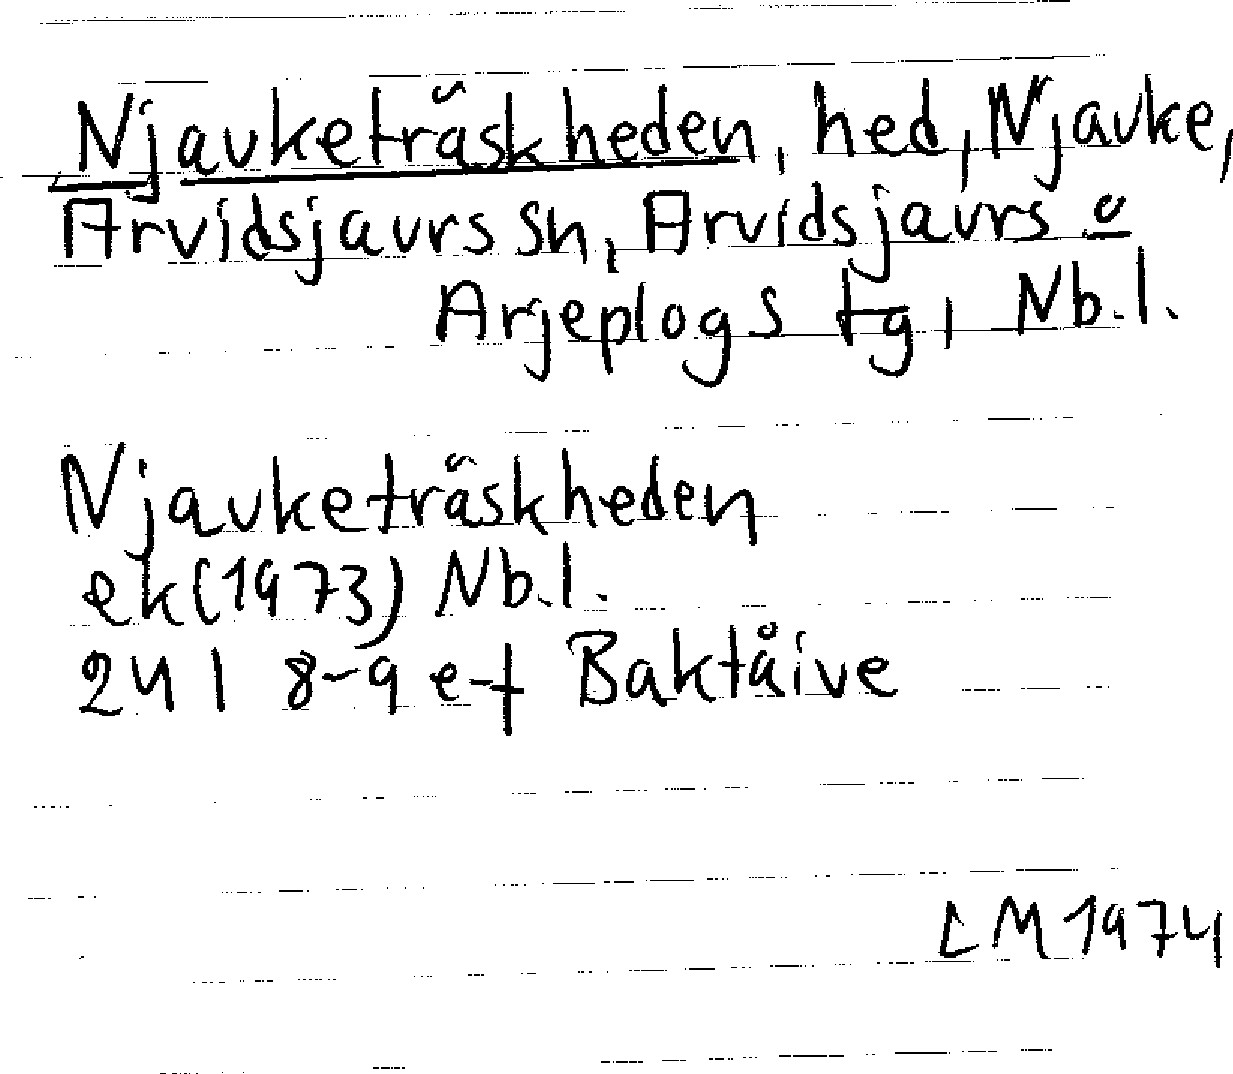 Njauketräskheden, hed, Njauke,
Arvidsjaurs sn, Arvidsjaurs o
Arjeplogs tg, Nb.l.
Njauketräskheden
ek(1973) Nb.l.
24 I 8-9 e-f Baktåive
LM 1974